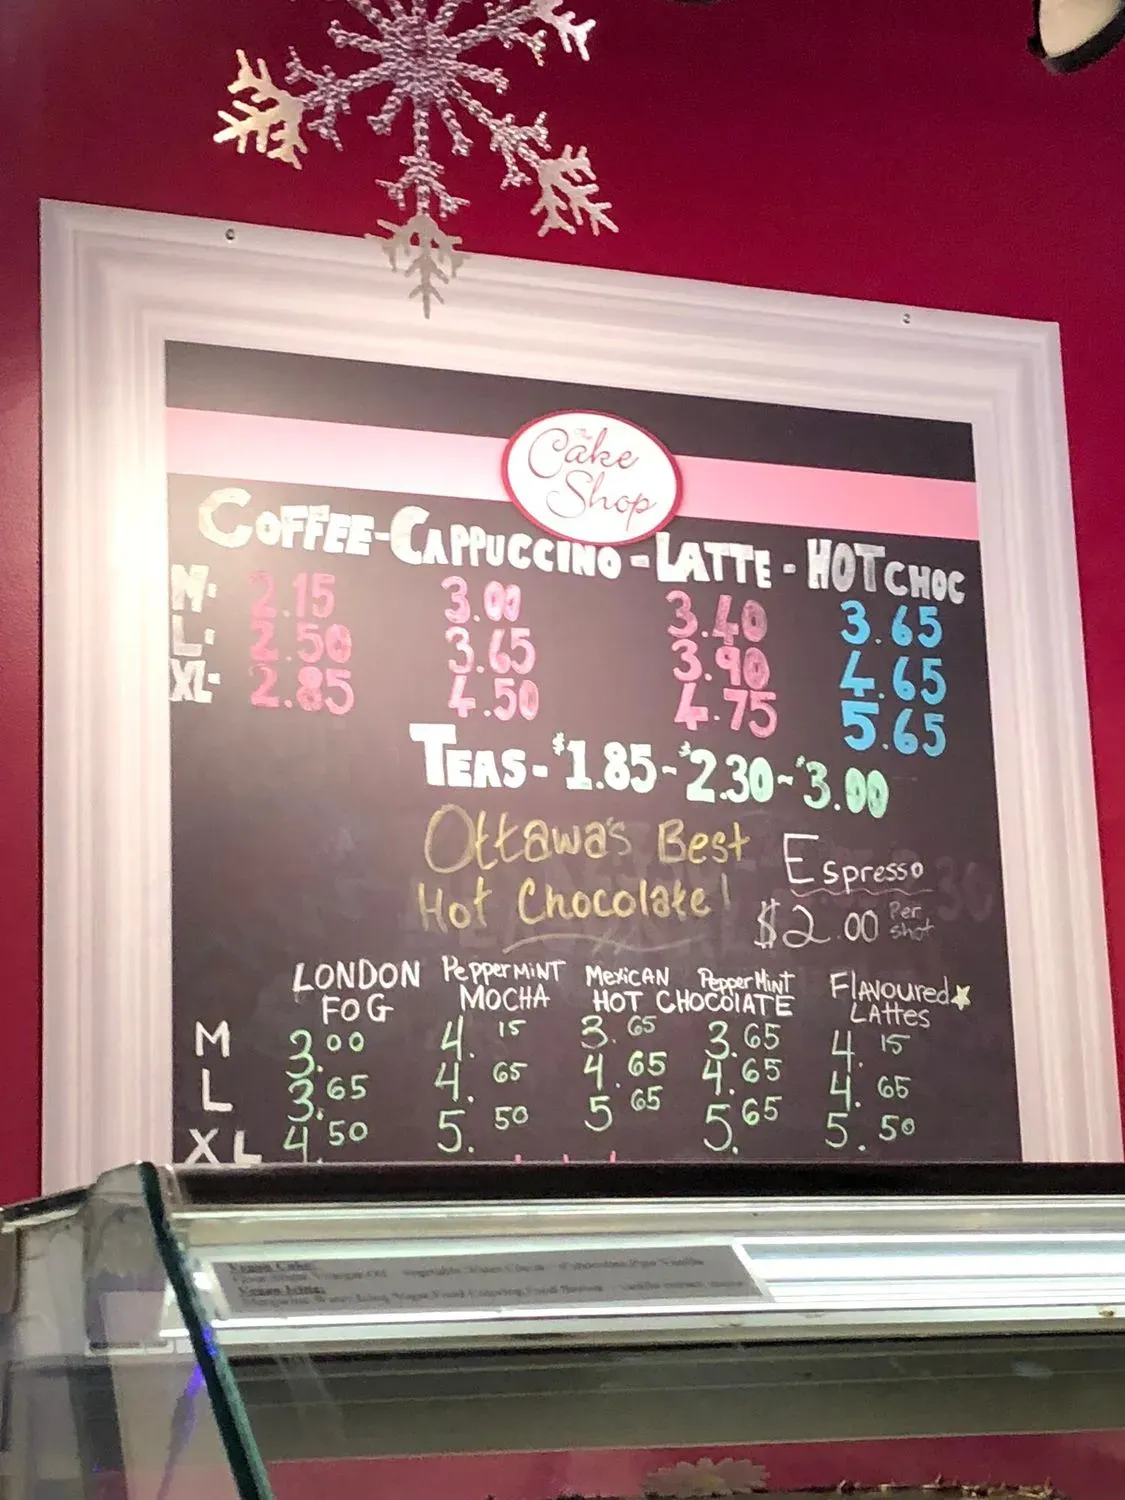 The
Cake
Shop
COFFEE-CAPPUCCINO-LATTE-HOT CHOC
M- 2.15 3.00 3.40 3.65
L- 2.50 3.65 3.90 4.65
XL- 2.85 4.50 4.75 5.65
TEAS-$1.85~$2.30~$3.00
Ottawa's Best
Hot Chocolate!
Espresso
$2.00 Per
shot
LONDON
FOG
PepperMiNT
MOCHA
MexiCAN PepperMint
HOT CHOCOlATE
FlAVoured
LAttes
M 3.00 4.15 3.65 3.65 4.15
L 3.65 4.65 4.65 4.65 4.65
XL 4.50 5.50 5 65 5.65 5.50
Vegan Cake:
Vegan Icing: